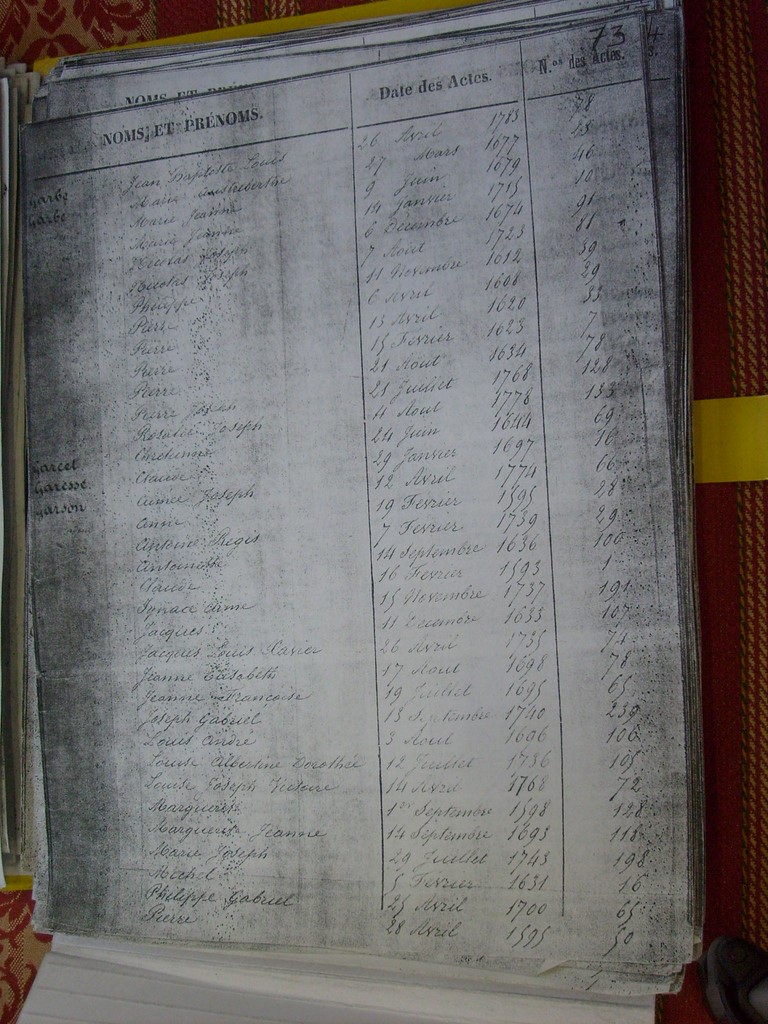 73
NOMS ET PRÉN
NOMS ET PRÉNOMS. Date des Actes. N.os des Actes.
Garbe Jean Baptiste Louis 26 Avril 1783 78
Garbé Marie Austreberthe 27 Mars 1677 25
Marie Jeanne 9 Juin 1679 46
Marie Jeanne 14 Janvier 1715 10
Nicolas Joseph 6 Décembre 1674 91
Nicolas Joseph 7 Aout 1723 81
Philippe 11 Novembre 1612 39
Pierre 6 Avril 1608 29
Pierre 13 Avril 1620 33
Pierre 15 Fevrier 1623 7
Pierre 21 Aout 1634 78
Pierre Joseph 21 Juillet 1768 128
Rosalie Joseph 4 Aout 1778 153
Garcet Chretienne 24 Juin 1644 69
Garesse Claude 29 Janvier 1697 16
Garson Aimée Joseph 12 Avril 1774 66
Anne 19 Fevrier 1595 28
Antoine Regis 7 Fevrier 1739 29
Antoinette 14 Septembre 1636 100
Claude 16 Fevrier 1593 1
Ignace Aimé 15 Novembre 1737 191
Jacques 11 Decembre 1633 107
Jacques Louis Xavier 26 Avril 1735 74
Jeanne Elisabeth 17 Aout 1698 78
Jeanne Françoise 19 Juillet 1695 65
Joseph Gabriel 13 Septembre 1740 239
Louis André 3 Aout 1696 106
Louise Albertine Dorothée 12 Juillet 1736 105
Louise Joseph Victoire 14 Avril 1768 72
Marguerite 1er Septembre 1598 128
Marguerite Jeanne 14 Septembre 1693 118
Marie Joseph 29 Juillet 1743 198
Michel 5 Fevrier 1631 16
Philippe Gabriel 25 Avril 1700 65
Pierre 28 Avril 1595 50